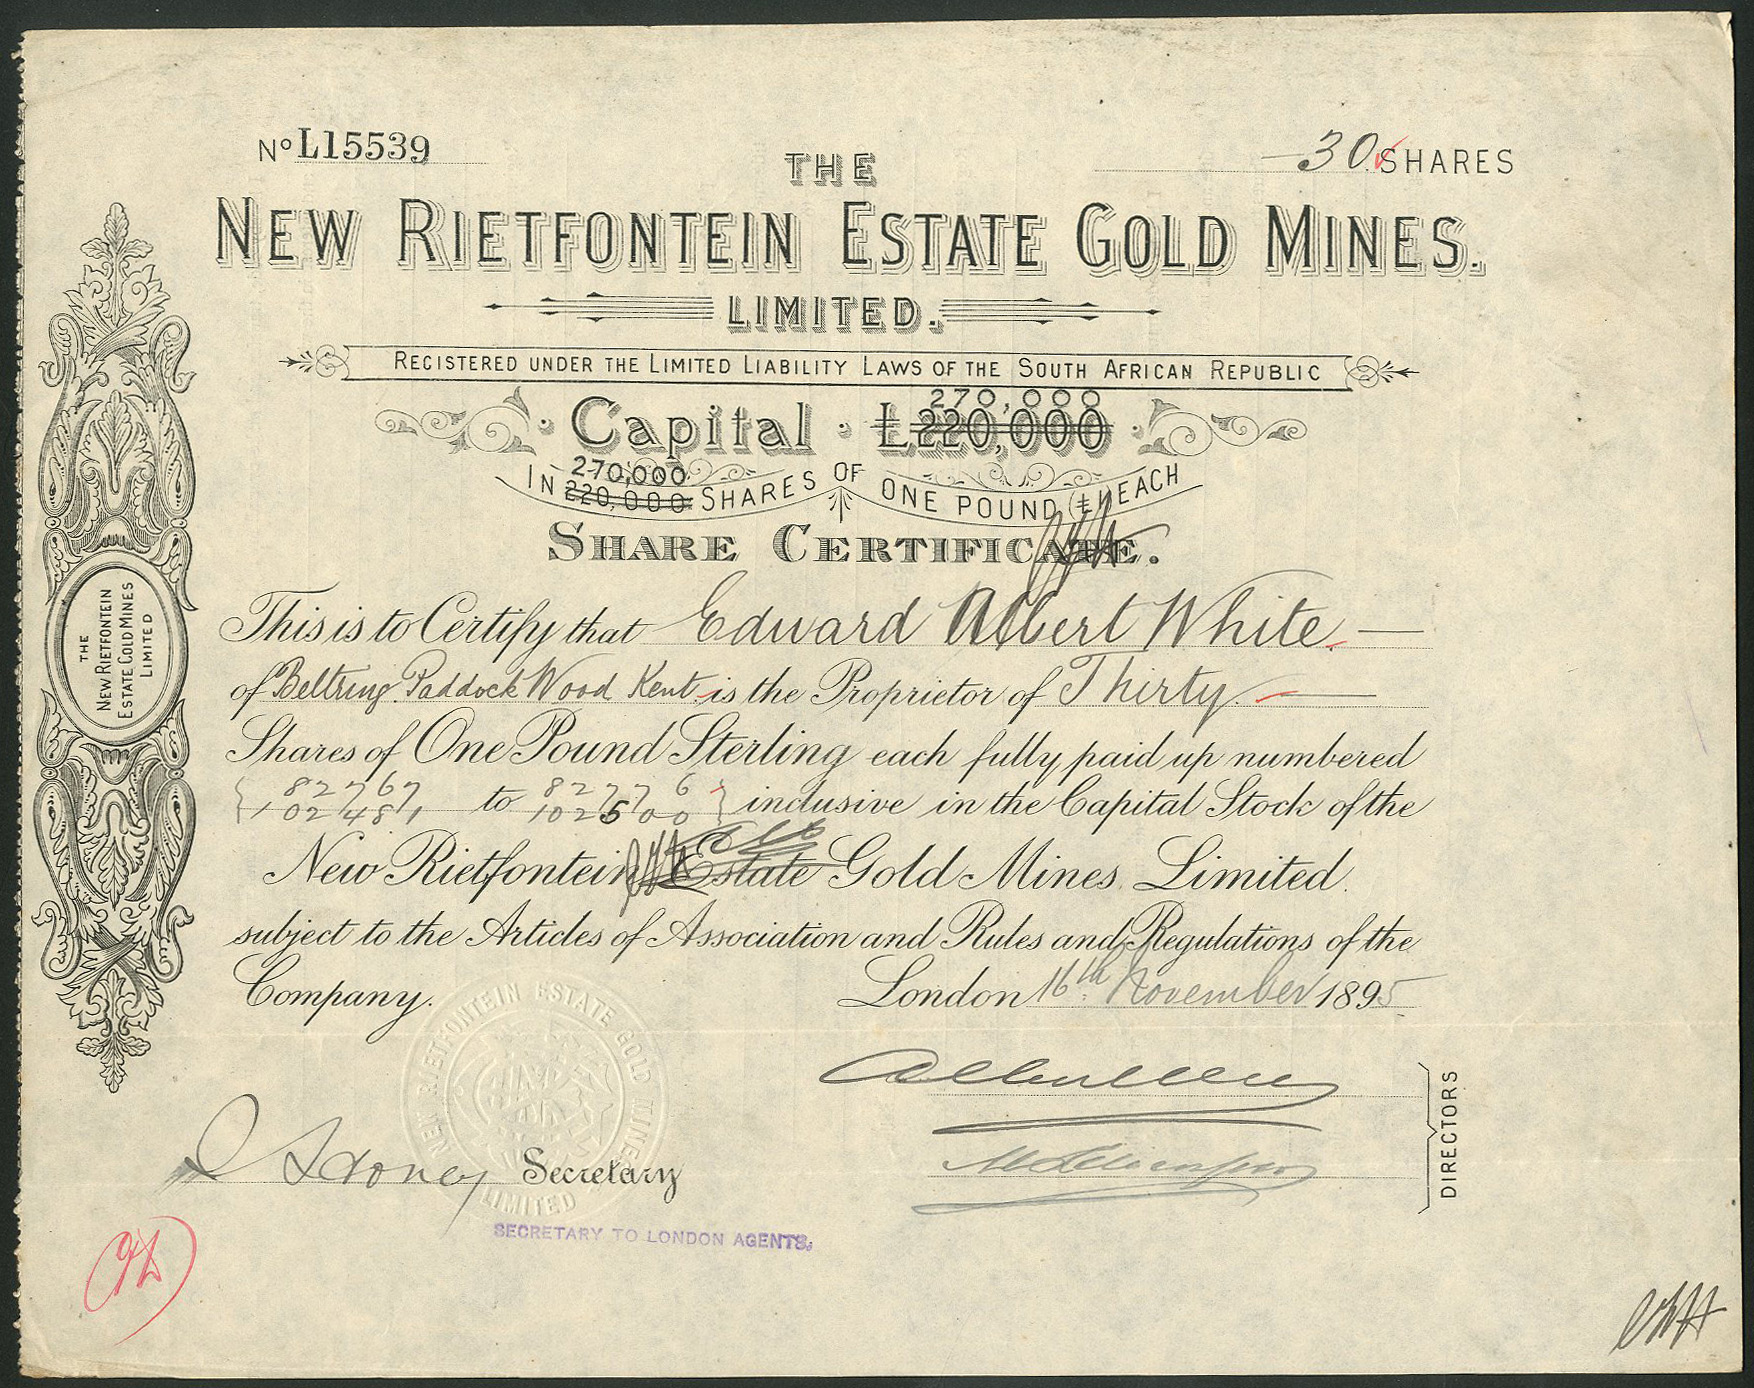 No L15539
30 SHARES
THE
NEW RIETFONTEIN ESTATE GOLD MINES.
LIMITED.
REGISTERED UNDER THE LIMITED LIABILITY LAWS OF THE SOUTH AFRICAN REPUBLIC
270,000
Capital £220,000
270,000
IN 220,000 SHARES OF ONE POUND (£1) EACH
SHARE CERTIFICATE.
This is to Certify that Edward Albert White
of Beltring Paddock Wood Kent is the Proprietor of Thirty
Shares of One Pound Sterling each fully paid up numbered
82767 to 82776
102481 to 102500 inclusive in the Capital Stock of the
New Rietfontein Estate Gold Mines Limited.
subject to the Articles of Association and Rules and Regulations of the
Company.
London 16th November 1895
DIRECTORS
Secretary
SECRETARY TO LONDON AGENTS.
THE
NEW RIETFONTEIN
ESTATE GOLD MINES
LIMITED
NEW RIETFONTEIN ESTATE GOLD MINES
LIMITED